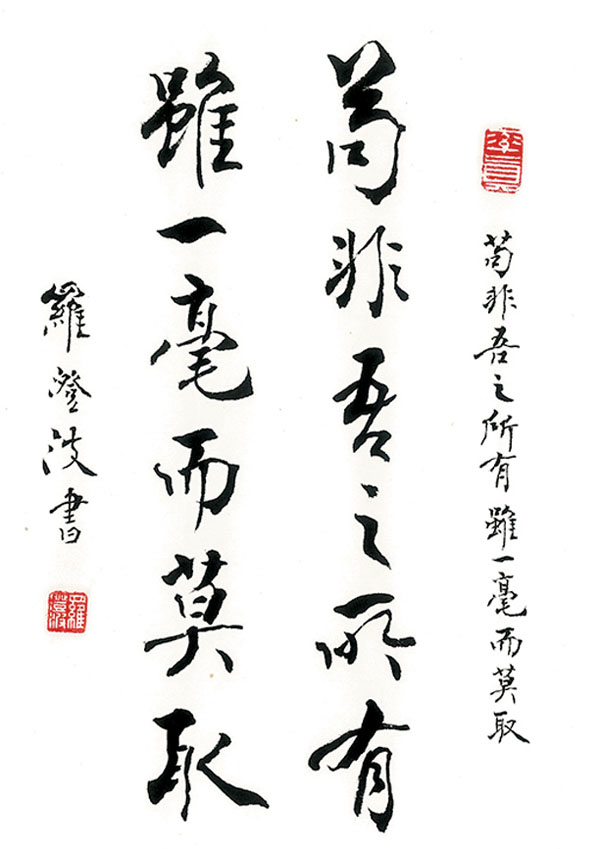 苟非吾之所有雖一毫而莫取
苟非吾之所有
雖一毫而莫取
羅澄波書